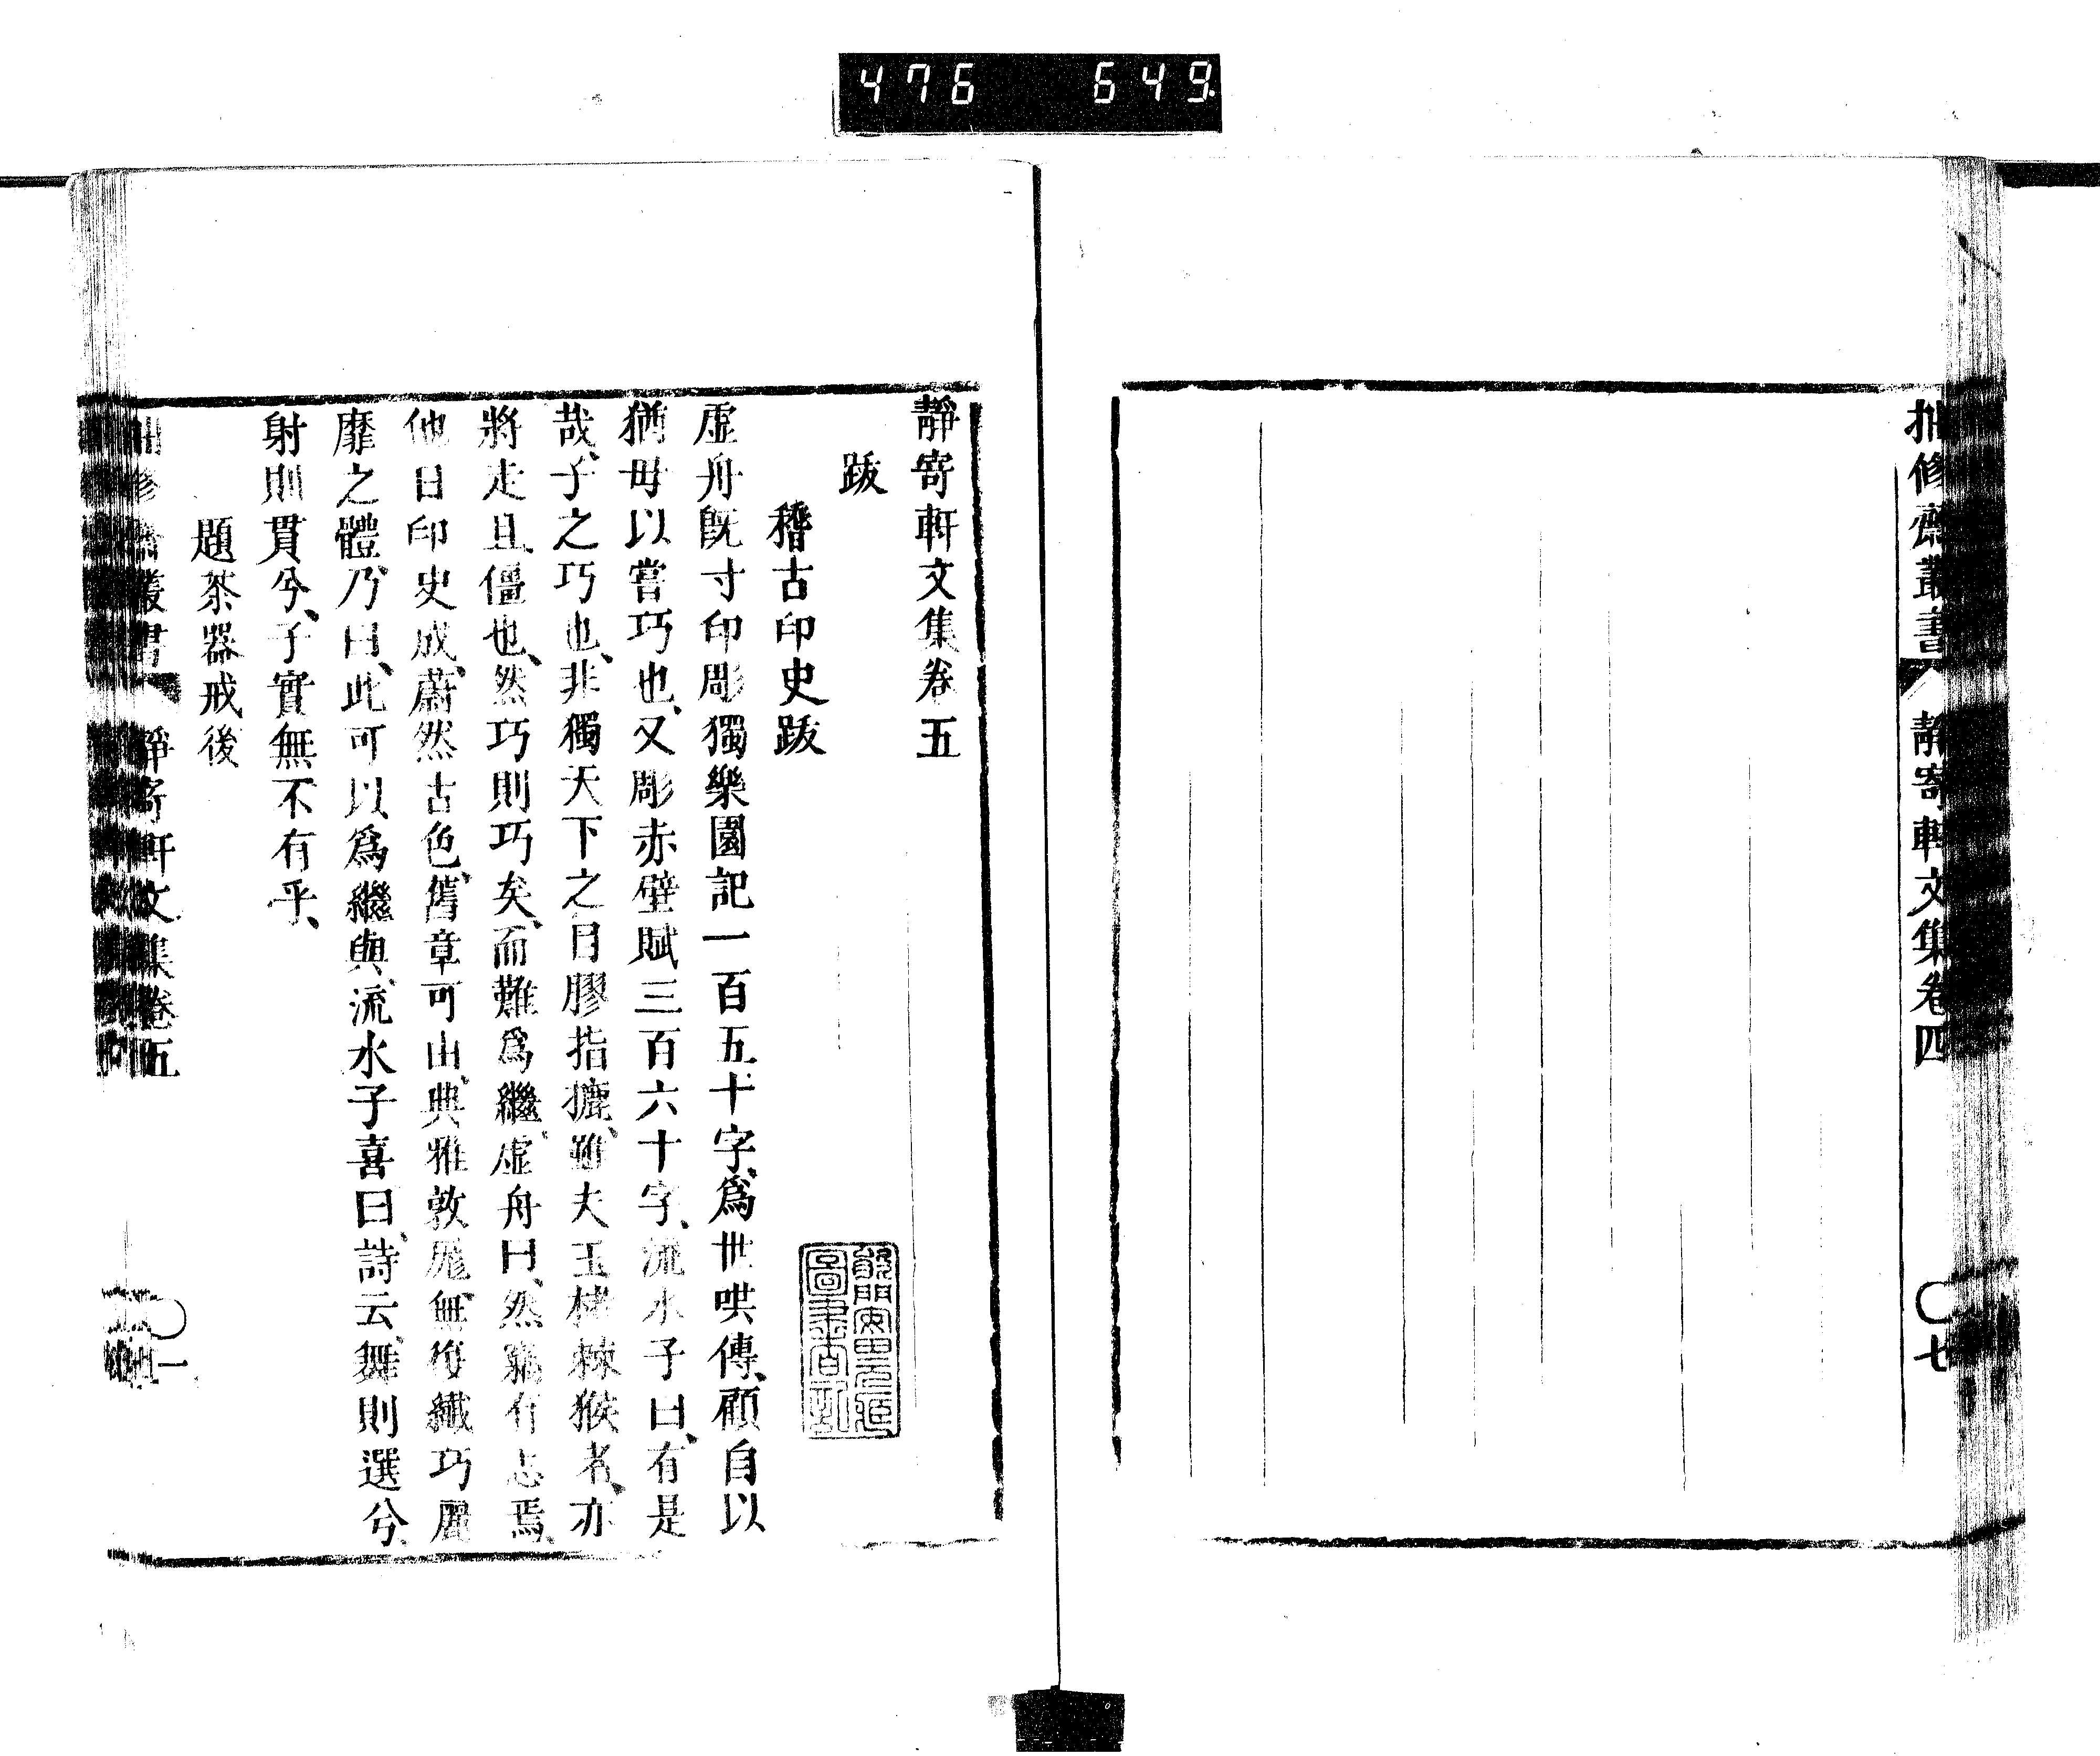 476 649
拙修齋叢書 靜寄軒文集卷四 〇七
靜寄軒文集卷五
跋
稽古印史跋
虛舟旣寸印彫獨樂園記一百五十字、爲世哄傳、顧自以
猶毋以嘗巧也、又彫赤壁賦三百六十字、流水子曰、有是
哉、子之巧也、非獨天下之目膠指攦、雖夫玉楮棘猴者、亦
將走且僵也、然巧則巧矣、而難爲繼、虛舟曰、然竊有志焉、
他日印史成、蔚然古色、舊章可由、典雅敦厖、無復纖巧麗
靡之體、乃曰、此可以爲繼與、流水子喜曰、詩云、舞則選兮、
射則貫兮、子實無不有乎、
題茶器戒後
拙修齋叢書 靜寄軒文集卷五 〇一